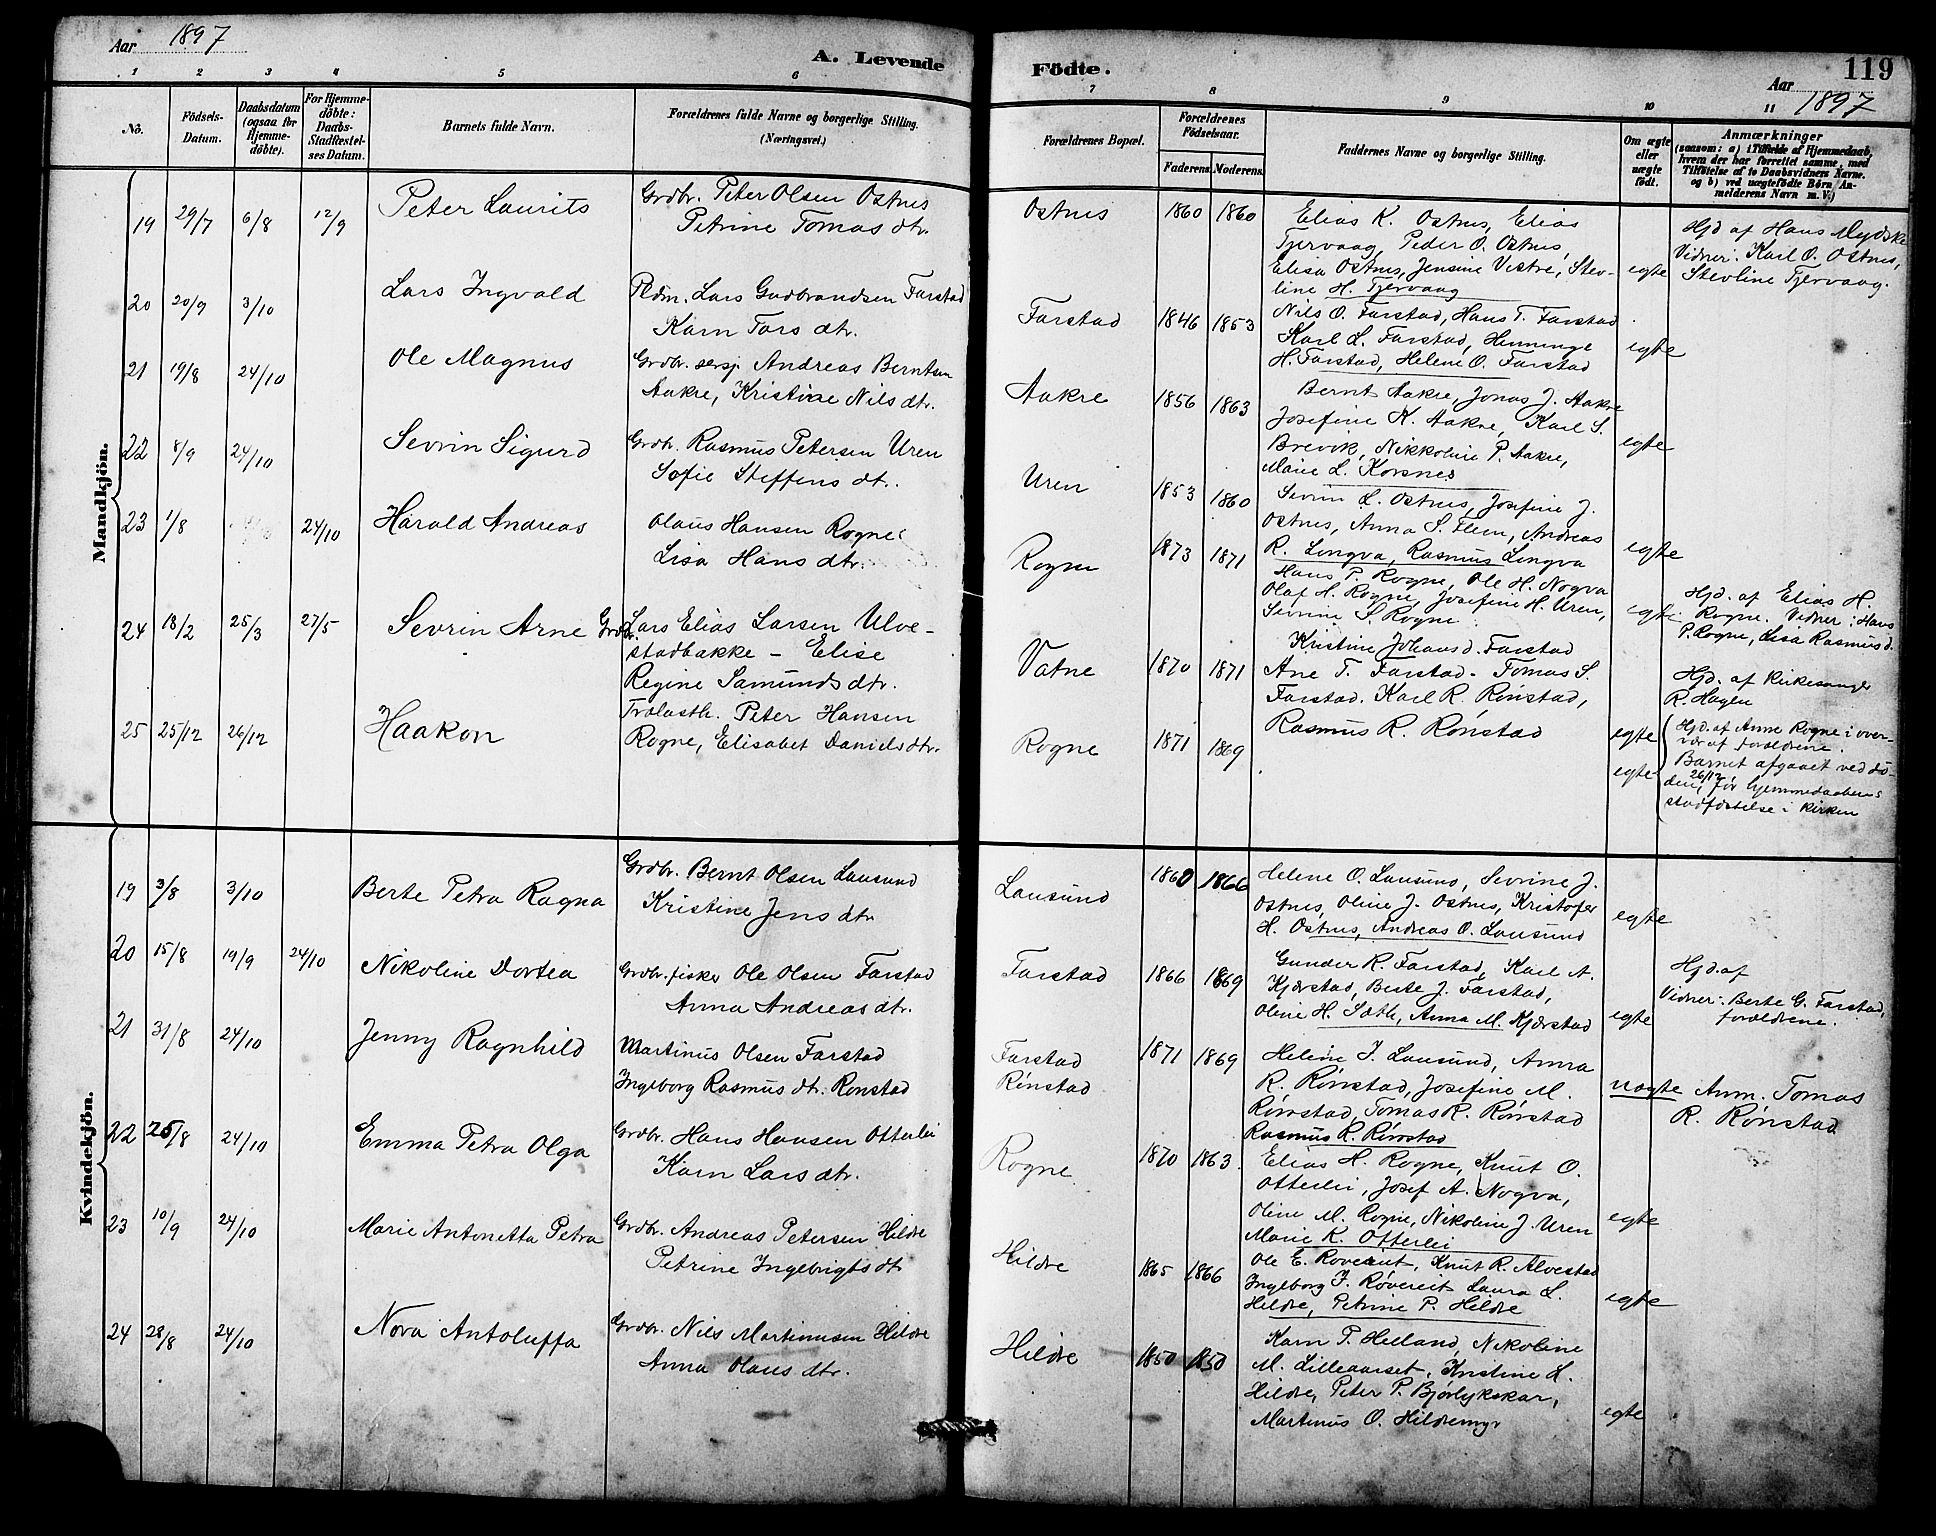 Aar 1897
A. Levende
1 2 3 4 5 6
No.
Födsels-Datum.
Daabsdatum (ogsaa for Hjemme-döbte).
For Hjemme-döbte: Daabs-Stadfæstel-ses Datum.
Barnets fulde Navn.
Forældrenes fulde Navne og borgerlige Stilling. (Næringsvei.)
Mandkjön.
19 29/7 6/8 12/9 Peter Laurits Grdbr. Peter Olsen Ostnes
Petrine Tomas dtr.
20 20/9 3/10 Lars Ingvald Pldm. Lars Gudbrandsen Farstad
Karn Tors dtr.
21 19/8 24/10 Ole Magnus Grdbr. sersj. Andreas Berntsen
Aakre, Kristine Nils dtr.
22 8/9 24/10 Sevrin Sigurd Grdbr. Rasmus Petersen Uren
Sofie Steffens dtr.
23 1/8 24/10 Harald Andreas Olaus Hansen Rogne
Lisa Hans dtr.
24 18/2 25/3 27/5 Sevrin Arne Grdbr. Lars Elias Larsen Ulve-
stadbakke - Elise
Regine Samunds dtr.
25 25/12 26/12 Haakon Trolasth. Peter Hansen
Rogne, Elisabet Daniels dtr.
Kvindekjön.
19 3/8 3/10 Berte Petra Ragna Grdbr. Bernt Olsen Lausund
Kristine Jens dtr
20 15/8 19/9 24/10 Nikoline Dortea Grdbr. fisker Ole Olsen Farstad
Anna Andreas dtr.
21 31/8 24/10 Jenny Ragnhild Martinus Olsen Farstad
Ingeborg Rasmus dtr. Rønstad
22 25/8 24/10 Emma Petra Olga Grdbr. Hans Hansen Otterlei
Karn Lars dtr.
23 10/9 24/10 Marie Antonetta Petra Grdbr. Andreas Petersen Hildre
Petrine Ingebrigts dt
24 28/8 24/10 Nora Antoluffa Grdbr. Nils Martinusen Hildre
Anna Olaus dtr.
119
Födte.
Aar 1897
7 8 9 10 11
Forældrenes Bopæl.
Forældrenes Födselsaar.
Faderens. Moderens.
Faddernes Navne og borgerlige Stilling.
Om ægte eller uægte födt.
Anmærkninger
(saasom: a) i Tilfælde af Hjemmedaab,
hvem der har forrettet samme, med
Tilföielse af to Daabsvidners Navne.
og b) ved uægtefödte Börn, An-
melderens Navn m. V.)
Ostnes 1860 1860 Elias K. Ostnes, Elias
Tjervaag, Peder O. Ostnes,
Elisa Ostnes, Jensine Vestre, Stev-
line H. Tjervaag
egte
Hjd af Hans Mydske
Vidner: Karl O. Ostnes,
Stevline Tjervaag.
Farstad 1846 1853 Nils O. Farstad, Hans T. Farstad
Karl L. Farstad, Henninge
H. Farstad, Helene O. Farstad
egte
Aakre 1856 1863 Bernt Aakre, Jonas J. Aakre
Josefine K. Aakre, Karl S.
Brevik, Nikkoline P. Aakre,
Marie L. Korsnes
egte
Uren 1853 1860 Sevrin L. Ostnes, Josefine J.
Ostnes, Anna S. Flem, Andreas
R. Longva, Rasmus Longva
egte
Rogne 1873 1871 Hans P. Rogne, Ole H. Nogva
Olaf H. Rogne, Josefine H. Uren,
Sevrine S. Rogne
egte
Hjd. af Elias H.
Rogne. Vidner: Hans
P. Rogne, Lisa Rasmusd.
Vatne 1870 1871 Kristine Johansd. Farstad
Ane T. Farstad. Tomas S.
Farstad. Karl R. Rønstad,
Rasmus R. Rønstad
egte
Hjd. af Kirkesanger
R. Hagen
Rogne 1871 1869
egte
Hjd. af Anne Rogne i over-
vær af forældrene.
Barnet afgaaet ved dö-
den 26/12, før hjemmedaabens
stadfæstelse i kirken
Lausund 1860 1866 Helene O. Lausund, Sevrine J.
Ostnes, Oline J. Ostnes, Kristofer
H. Ostnes, Andreas O. Lausund
egte
Farstad 1866 1869 Gunder R. Farstad, Karl A.
Kjærstad, Berte J. Farstad,
Oline H. Sæth, Anna M. Kjærstad
egte
Hjd. af
Vidner: Berte G. Farstad,
forældrene.
Farstad
Rønstad
1871 1869 Helene J. Lausund, Anna
R. Rønstad, Josefine M.
Rønstad, Tomas R. Rønstad
Rasmus R. Rønstad
uægte
Anm. Tomas
R. Rønstad
Rogne 1870 1863. Elias H. Rogne, Knut O.
Otterlei, Josef A. Nogva,
Oline M. Rogne, Nikoline J. Uren
Marie K. Otterlei
egte
Hildre 1865 1866 Ole E. Røvereit, Knut R. Alvestad
Ingeborg J. Røvereit Laura L.
Hildre, Petrine P. Hildre
egte
Hildre 1850 1850 Karn P. Helland, Nikoline
M. Lilleaarset, Kristine L.
Hildre, Peter P. Bjørlykskar,
Martinus O. Hildremyr
egte